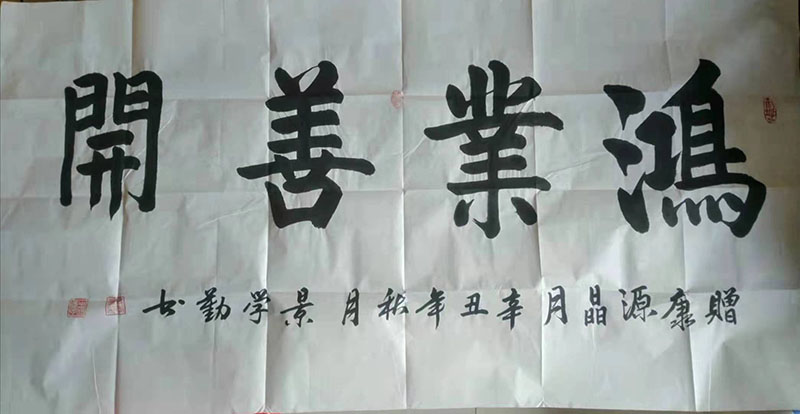 鴻業善開
贈康源晶月辛丑年秋月景学勤书